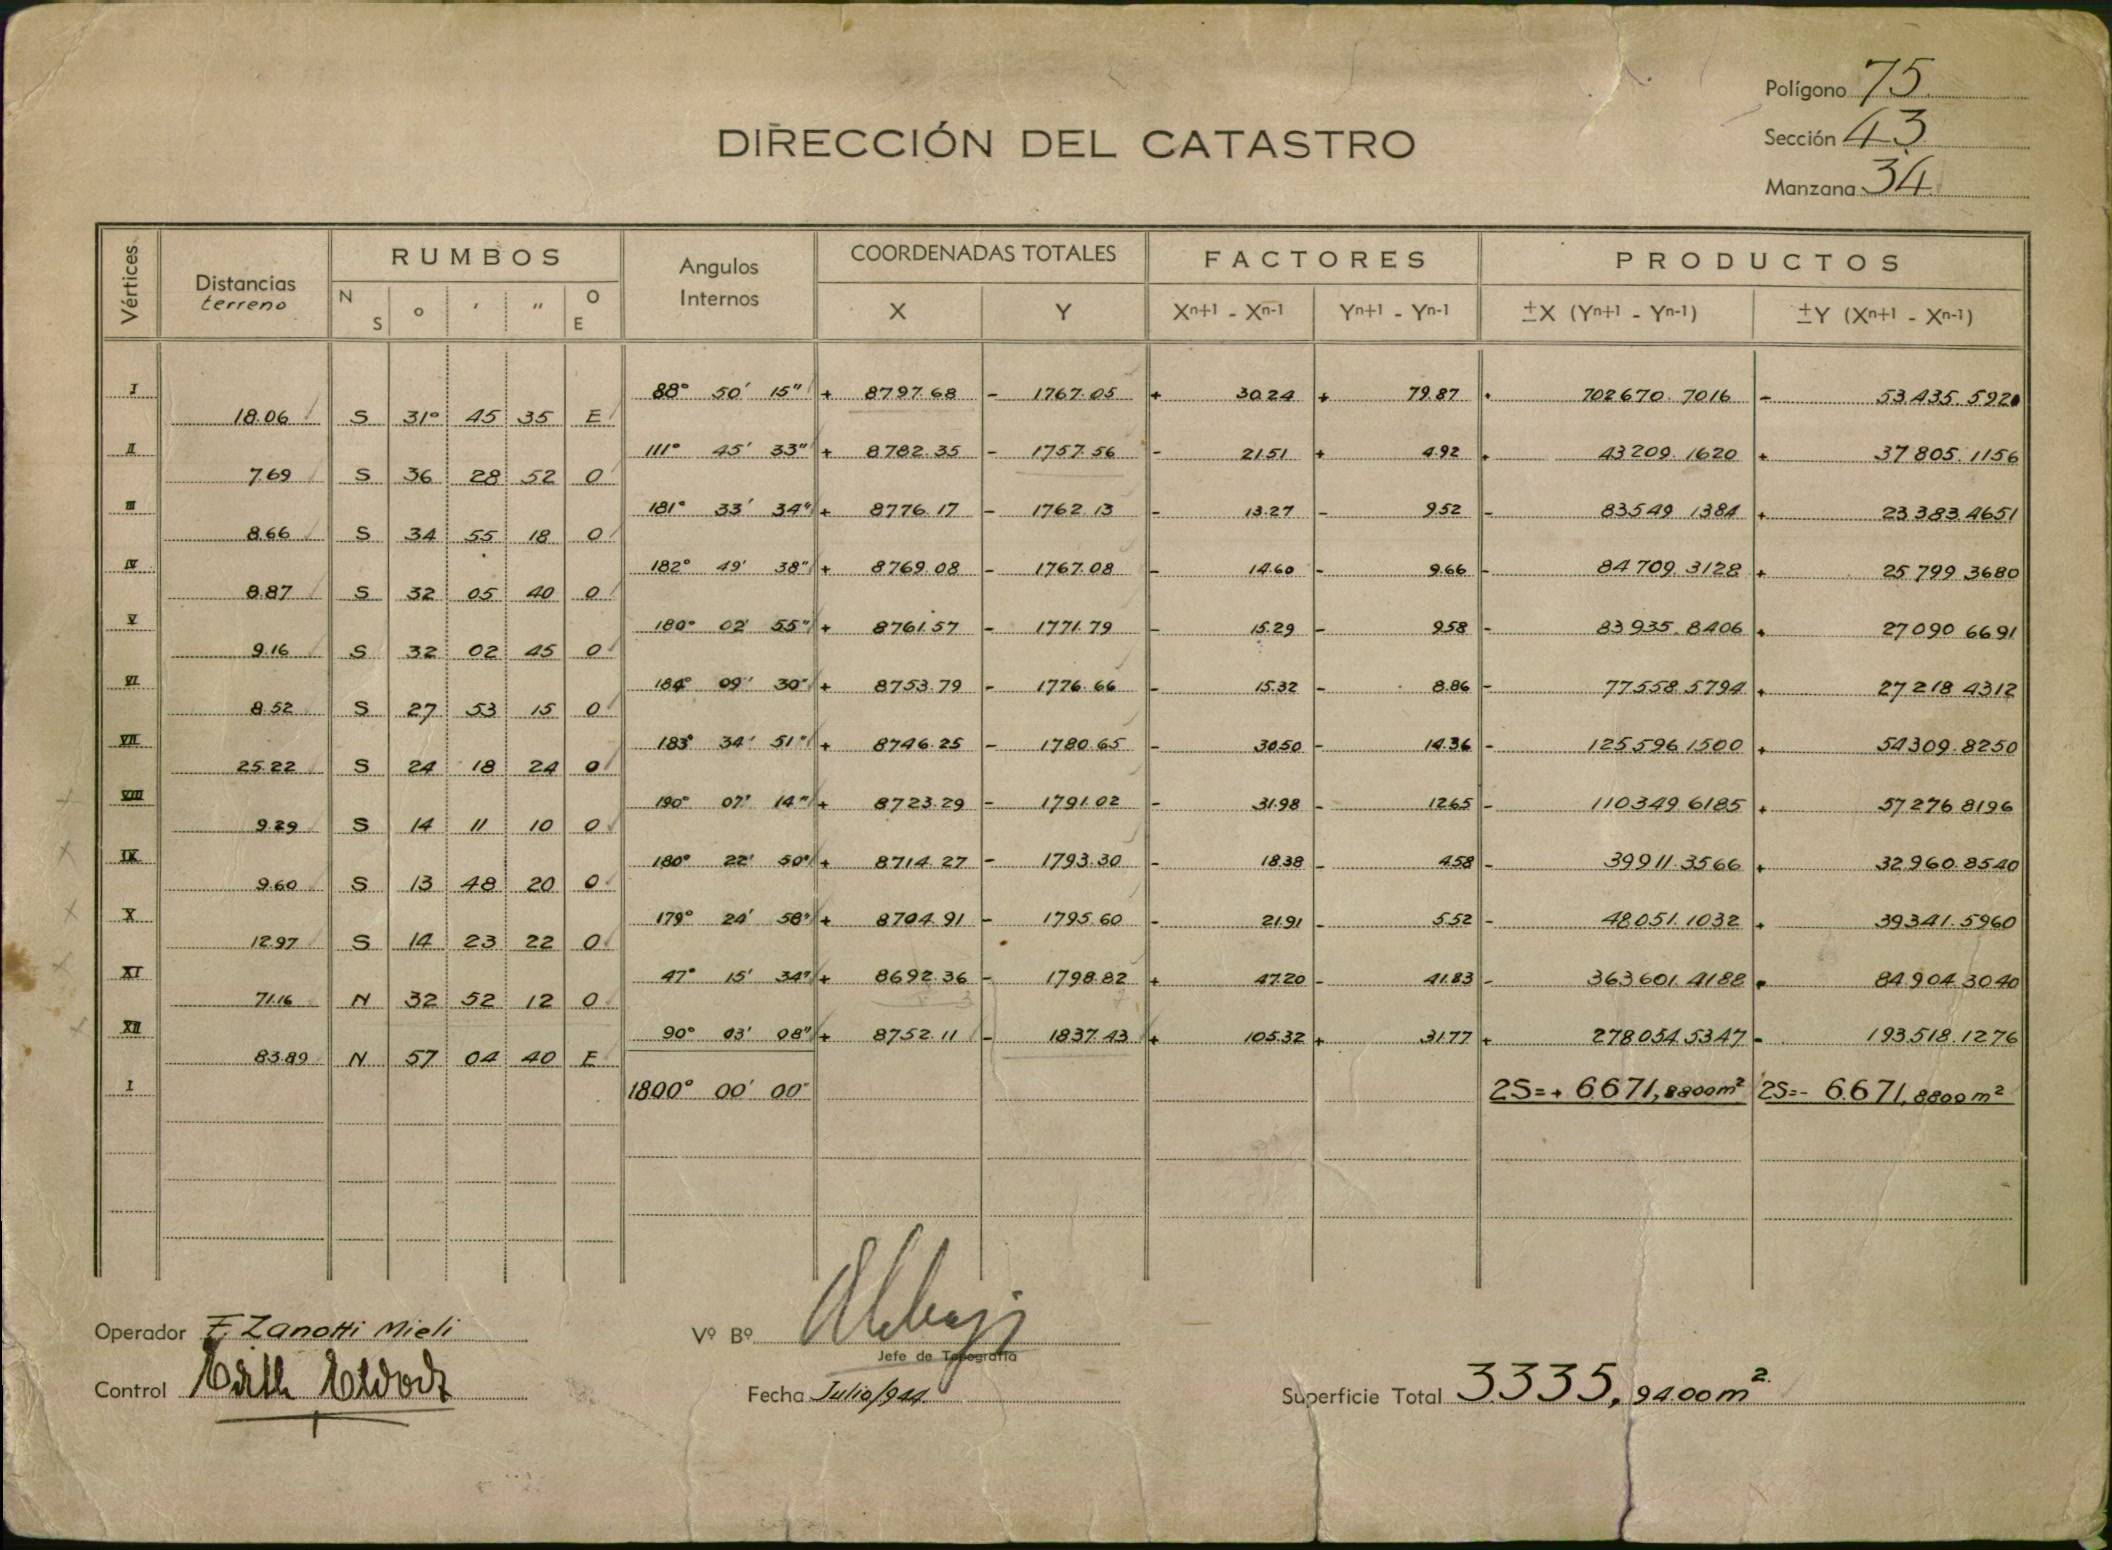 Polígono 75
Sección 43
Manzana 34
DIRECCIÓN DEL CATASTRO
Vértices Distancias terreno RUMBOS Angulos Internos COORDENADAS TOTALES FACTORES PRODUCTOS
N S o ' " O E X Y Xn+1 - Xn-1 Yn+1 - Yn-1 ±X (Yn+1 - Yn-1) ±Y (Xn+1 - Xn-1)
I 88° 50' 15" + 8797.68 - 1767.05 + 30.24 + 79.87 + 702670.7016 - 53.435.5920
18.06 S 31° 45 35 E
II 111° 45' 33" + 8782.35 - 1757.56 - 21.51 + 4.92 + 43209.1620 + 37805.1156
7.69 S 36 28 52 O
III 181° 33' 34" + 8776.17 - 1762.13 - 13.27 - 9.52 - 83549.1384 + 23.383.4651
8.66 S 34 55 18 O
IV 182° 49' 38" + 8769.08 - 1767.08 - 14.60 - 9.66 - 84709.3128 + 25799.3680
8.87 S 32 05 40 O
V 180° 02' 55" + 8761.57 - 1771.79 - 15.29 - 9.58 - 83935.8406 + 27090.6691
9.16 S 32 02 45 O
VI 184° 09' 30" + 8753.79 - 1776.66 - 15.32 - 8.86 - 77558.5794 + 27218.4312
8.52 S 27 53 15 O
VII 183° 34' 51" + 8746.25 - 1780.65 - 30.50 - 14.36 - 125596.1500 + 54309.8250
25.22 S 24 18 24 O
VIII 190° 07' 14" + 8723.29 - 1791.02 - 31.98 - 12.65 - 110349.6185 + 57276.8196
9.29 S 14 11 10 O
IX 180° 22' 50" + 8714.27 - 1793.30 - 18.38 - 4.58 - 39911.3566 + 32.960.8540
9.60 S 13 48 20 O
X 179° 24' 58" + 8704.91 - 1795.60 - 21.91 - 5.52 - 48051.1032 + 39341.5960
12.97 S 14 23 22 O
XI 47° 15' 34" + 8692.36 - 1798.82 + 47.20 - 41.83 - 363601.4188 - 84.904.3040
71.16 N 32 52 12 O
XII 90° 03' 08" + 8752.11 - 1837.43 + 105.32 + 31.77 + 278054.5347 - 193.518.1276
83.89 N 57 04 40 E
I 1800° 00' 00" 2S=+ 6671,8800m² 2S=- 6.671,8800m²
Operador F. Zanotti Mieli Vº Bº
Jefe de Topografía
Control Fecha Julio/944. Superficie Total 3.335,9400m²